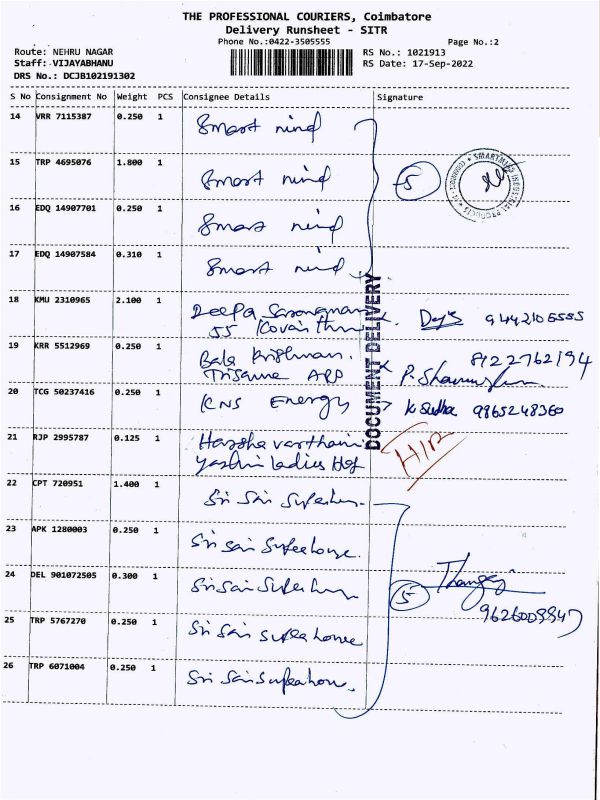 THE PROFESSIONAL COURIERS, Coimbatore
Delivery Runsheet - SITR
Phone No.:0422-3505555 Page No.:2
Route: NEHRU NAGAR RS No.: 1021913
Staff: VIJAYABHANU RS Date: 17-Sep-2022
DRS No.: DCJB102191302
S No Consignment No Weight PCS Consignee Details Signature
14 VRR 7115387 0.250 1 Smart mind
15 TRP 4695076 1.800 1 Smart mind 5
16 EDQ 14907701 0.250 1 Smart mind
17 EDQ 14907584 0.310 1 Smart mind
DOCUMENT DELIVERY
18 KMU 2310965 2.100 1 Deepa
55 9442106555
19 KRR 5512969 0.250 1 Bala Krishnan. 8122762194
20 TCG 50237416 0.250 1 KNS Energy K Sudha 9965248360
21 RJP 2995787 0.125 1 Harsha varthani
Yazhini ladies
22 CPT 720951 1.400 1 Sri Sai
23 APK 1280003 0.250 1 Sri Sai
24 DEL 901072505 0.300 1 Sri Sai 5
25 TRP 5767270 0.250 1 Sri Sai
26 TRP 6071004 0.250 1 Sri Sai